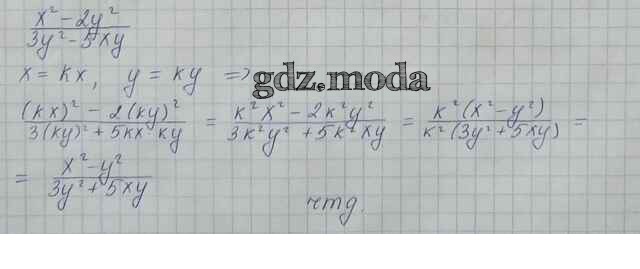 x² - 2y² / 3y² - 5xy
x = kx, y = ky => gdz.moda
(kx)² - 2(ky)² / 3(ky)² + 5kx·ky = k²x² - 2k²y² / 3k²y² + 5k²xy = k²(x² - y²) / k²(3y² + 5xy) =
= x² - y² / 3y² + 5xy
чтд.